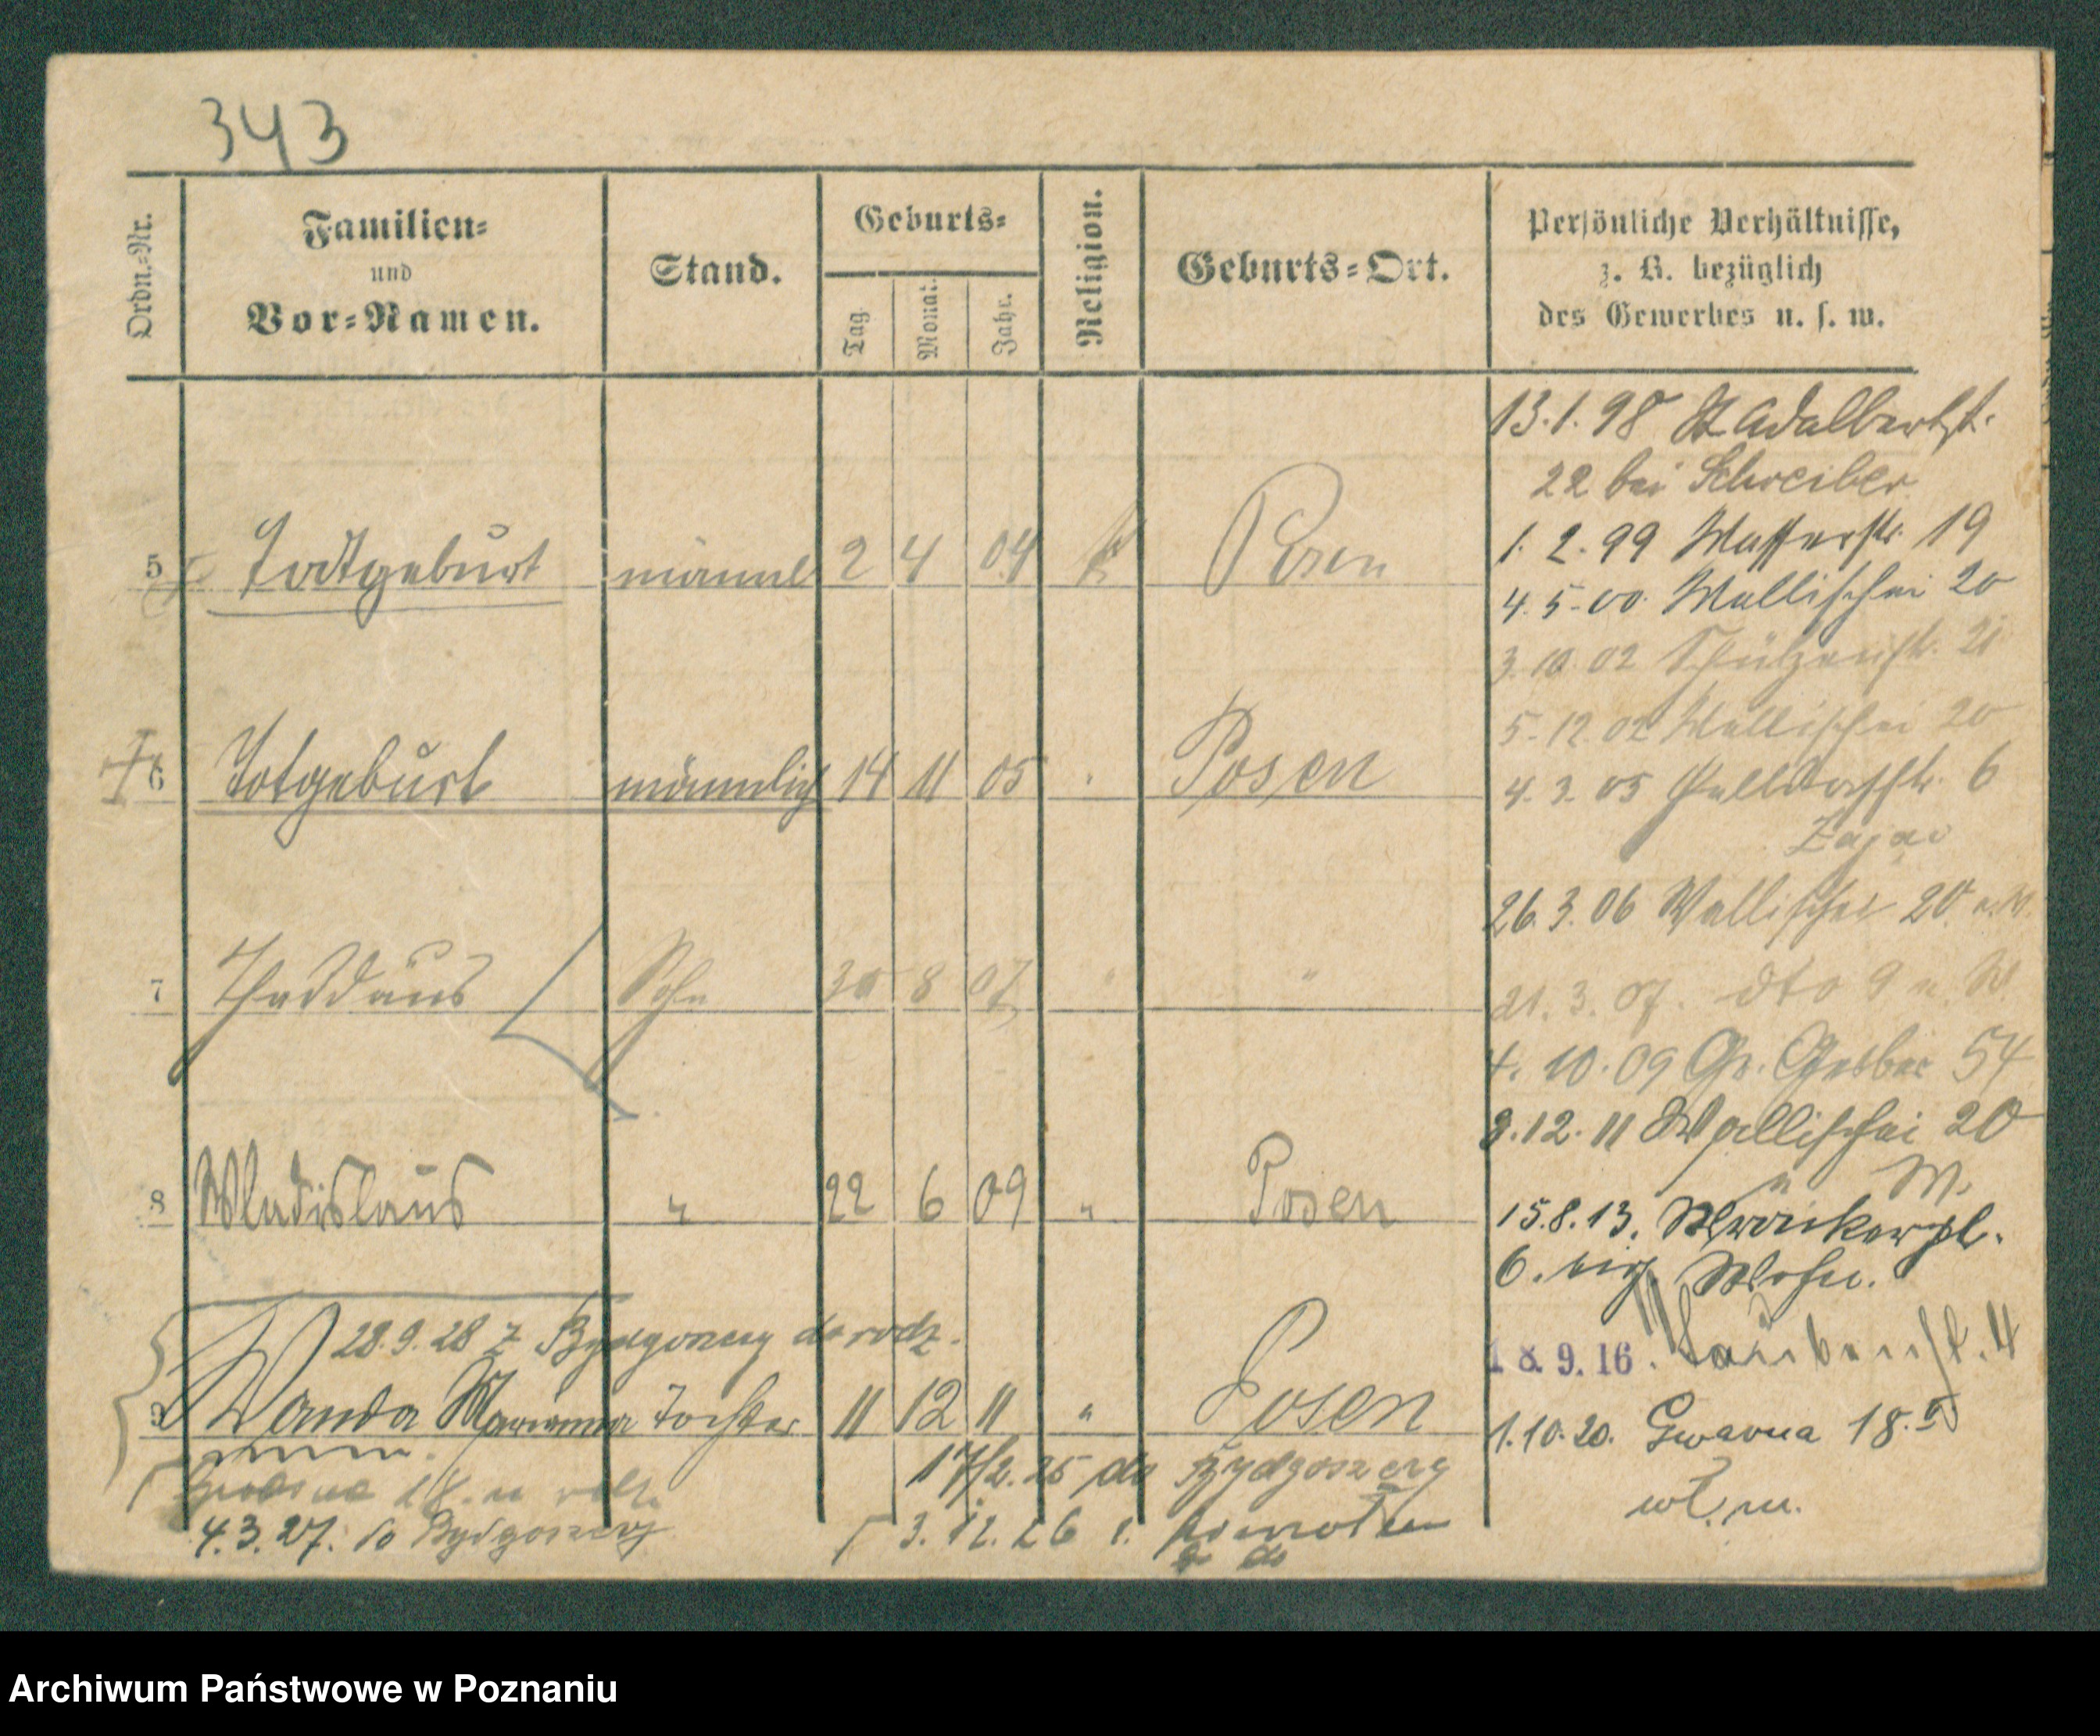 343
Ordn.-Nr.
Familien-
und
Vor-Namen.
Stand.
Geburts-
Tag.
Monat.
Jahr.
Religion.
Geburts-Ort.
Persönliche Verhältnisse,
z. B. bezüglich
des Gewerbes u. s. w.
13.1.98 St Adalbertst.
22 bei Schreiber
5 Todtgeburt männl 2 4 04 Posen
1. 2. 99 Wasserstr. 19
4. 5. 00. Wallischei 20
3. 10. 02 Schützenstr. 21
5. 12. 02 Wallischei 20
6 Totgeburt männlich 14 11 05 Posen
4. 3. 05 6
Zając
26. 3. 06 Wallischei 20
7 Thaddäus Sohn 30 8 07 " "
21. 3. 07. dto 9 u. W.
4. 10. 09 Gr. Gerber 54
3. 12. 11 Wallischei 20
u W.
8 Wladislaus " 22 6 09 " Posen
15. 8. 13. Wronkerpl.
6. eig. Wohn.
28.9.28 z Bydgoszczy do rodz.
18. 9. 16. 4
9 Wanda Marianna Tochter 11 12 11 " Posen
1. 10. 20. Gwarna 18.
17/2. 25 do Bydgoszczy
wł. m.
4. 3. 27. do Bydgoszczy
3. 12. 26 z.
do
Archiwum Państwowe w Poznaniu